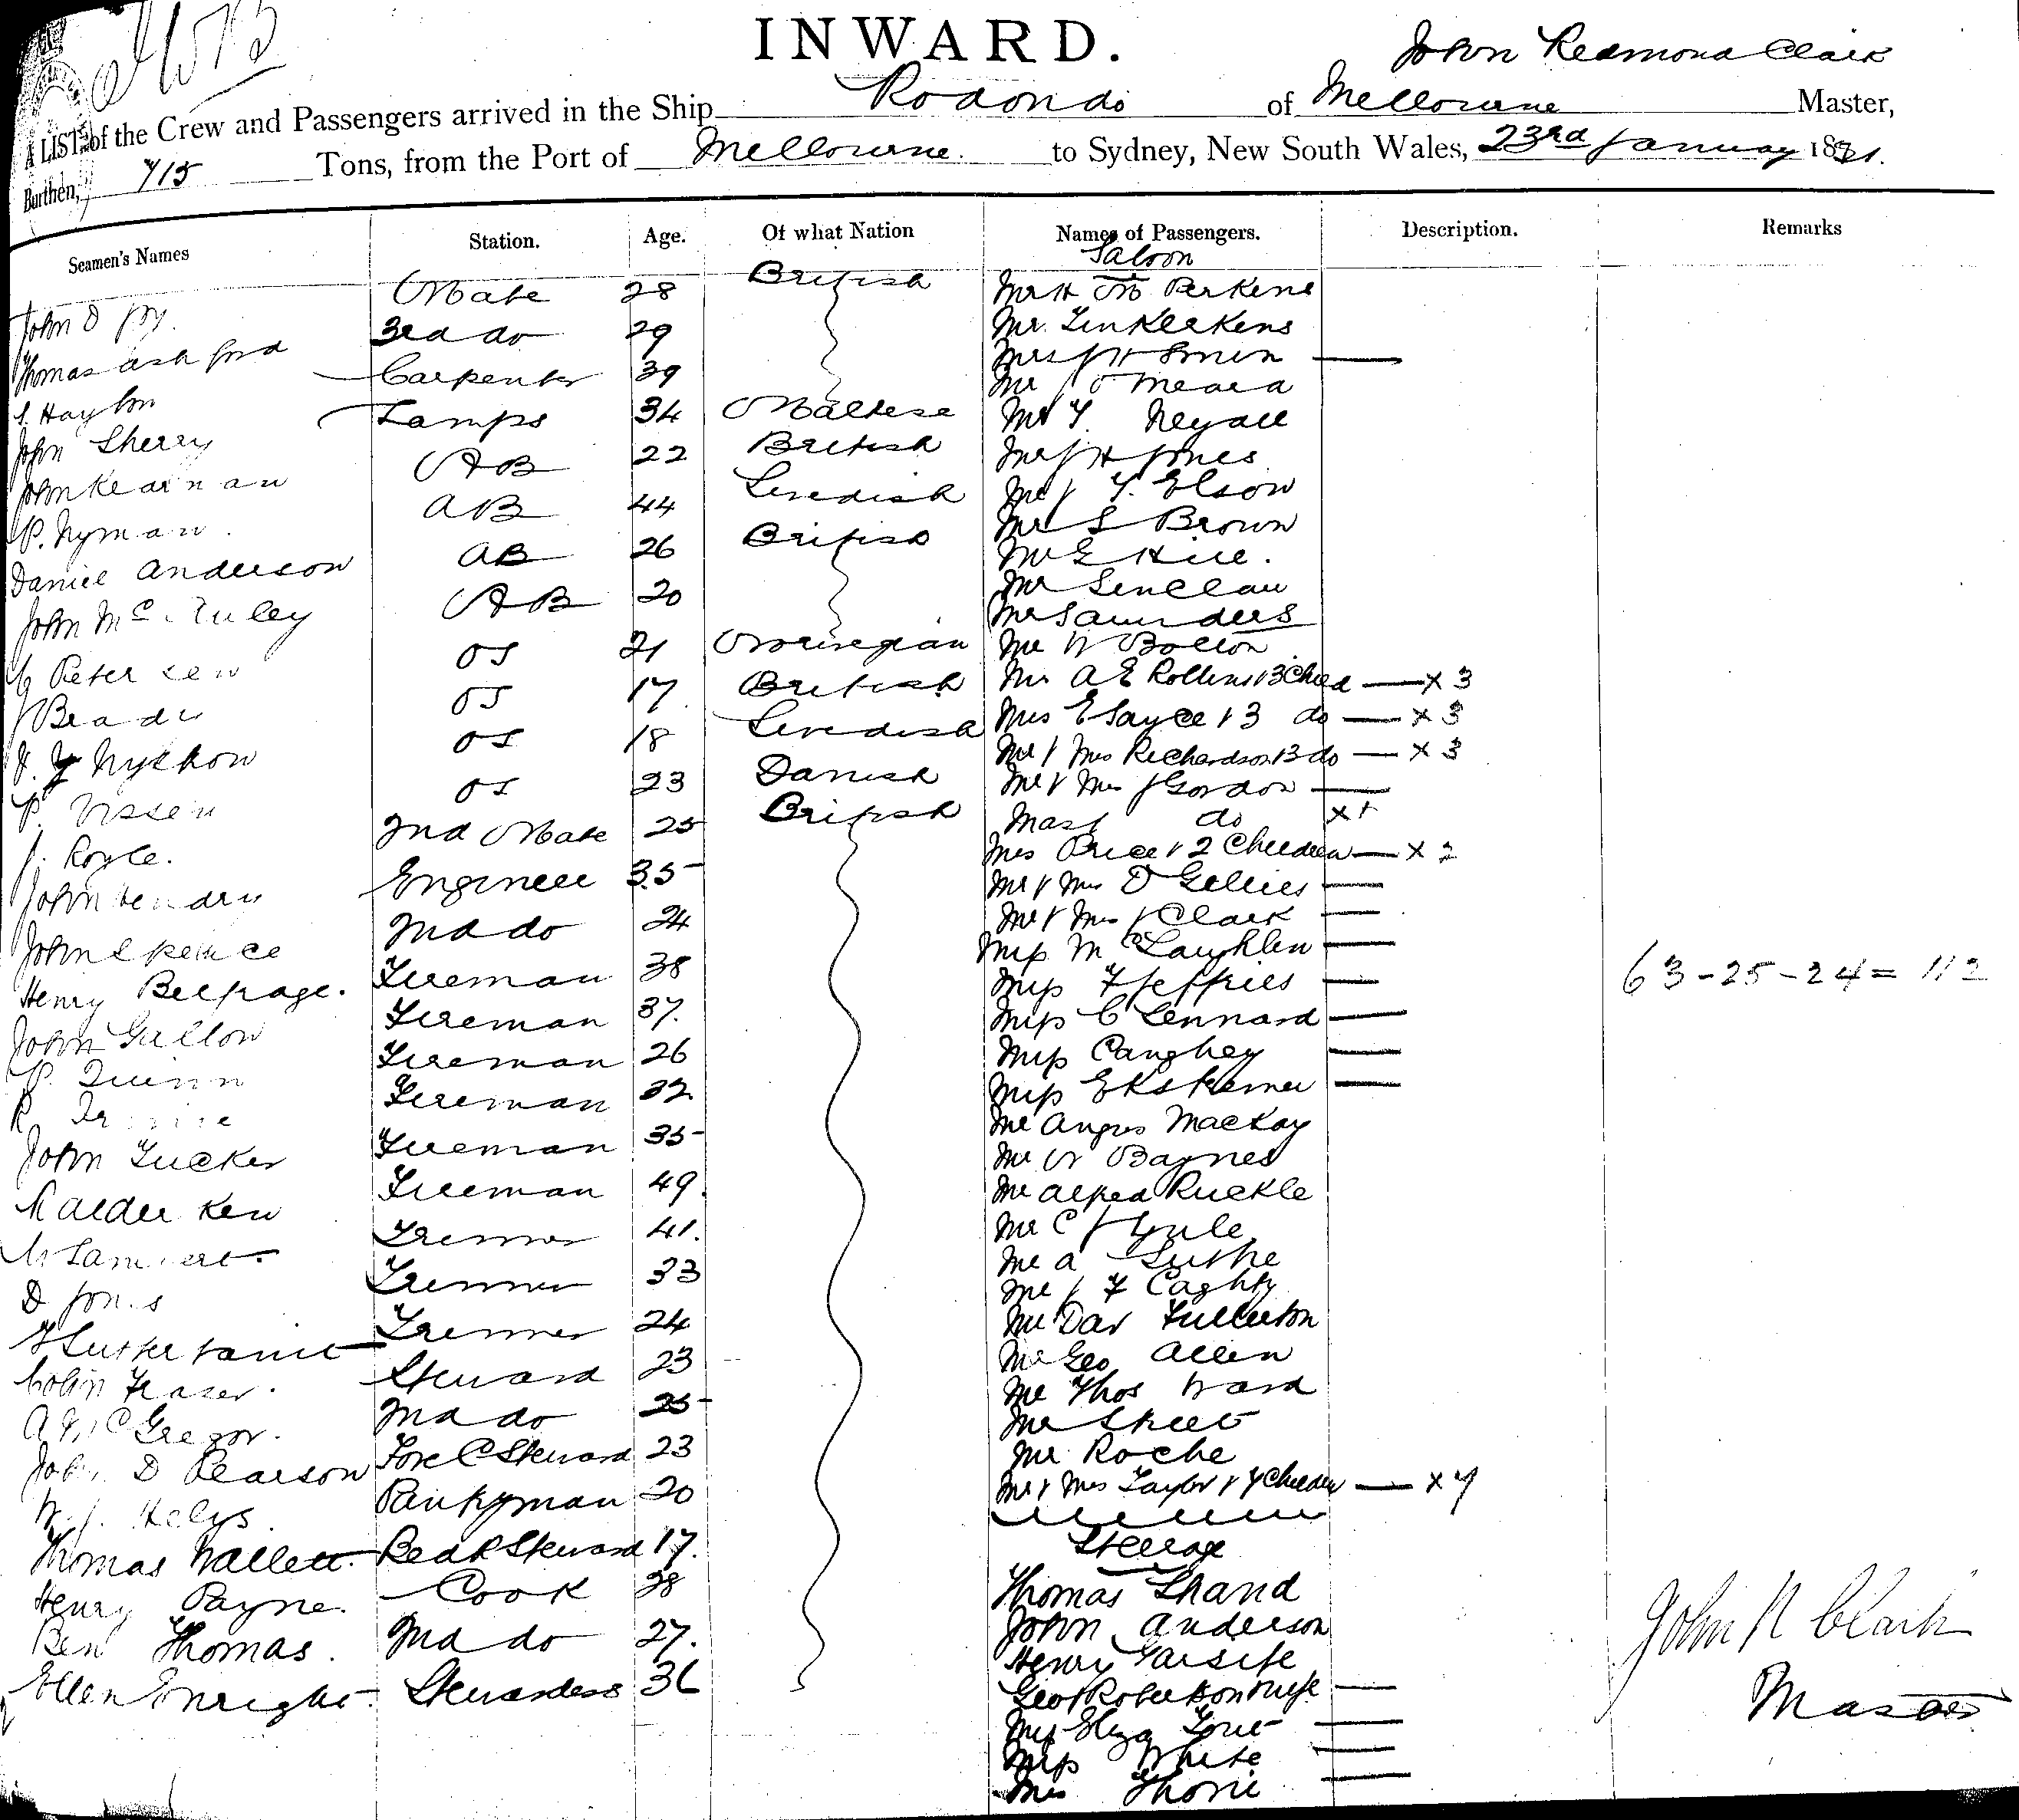 INWARD.
John Redmond Clark
A LIST of the Crew and Passengers arrived in the Ship Rodondo of Melbourne Master,
Burthen, 715 Tons, from the Port of Melbourne to Sydney, New South Wales, 23rd January 1891.
Seamen's Names Station. Age. Of what Nation Names of Passengers. Description. Remarks
Saloon
Mate 28 British Perkins
Thomas Ashford 3rd do 29
Carpenter 39 Mr J O'Meara
John Sherry Lamps 34 Maltese
John Kearnan AB 22 British Mr J H Jones
P. Nyman AB 44 Swedish Elson
Mr S Brown
Daniel Anderson AB 26 British Mr E Hill.
John McAuley AB 20 Mr Sinclair
Mr Saunders
Petersen OS 21 Norwegian Mr W Bolton
OS 17 British Mrs A E Rollins & 3 Child — x 3
OS 18 Swedish Mrs E Sayce & 3 do — x 3
Mr & Mrs Richardson & 3 do — x 3
OS 23 Danish Mr & Mrs J Gordon —
J. Royle. 2nd Mate 25 British Mast do x 1
Mrs Price & 2 Children — x 2
John Hendry Engineer 35 Mr & Mrs D Gillies —
John Spence 2nd do 24 Mr & Mrs J Clark —
Miss McLaughlen —
Henry Belfrage. Fireman 38 Miss F Jeffries —
63 - 25 - 24 = 112
John Gillow Fireman 37. Miss C Lennard —
P. Quinn Fireman 26 Miss Caughey —
Fireman 32. Miss —
Mr Angus Mackay
John Tucker Fireman 35 Mr W Baynes
Fireman 49. Mr Alfred Ruckle
Trimmer 41. Mr C J Yule
D Jones Trimmer 33 Mr A
Trimmer 24 Mr Dav Fullerton
Colin Fraser. Steward 23 Mr Geo Allen
Mr Thos Ward
A McGregor. 2nd do 25 Mr
John D Pearson Fore C Steward 23 Mr Roche
W. J. Pantryman 20 Mr & Mrs Taylor & 7 Children — x 7
Thomas Wallett. Steward 17. Steerage
Henry Payne. Cook 38 Thomas Shand
John Anderson
Ben Thomas. 2nd do 27. Henry Garside
Ellen Enright. Stewardess 36 Geo Robertson & wife —
Miss Eliza —
Miss White —
Mrs —
John R Clark
Master